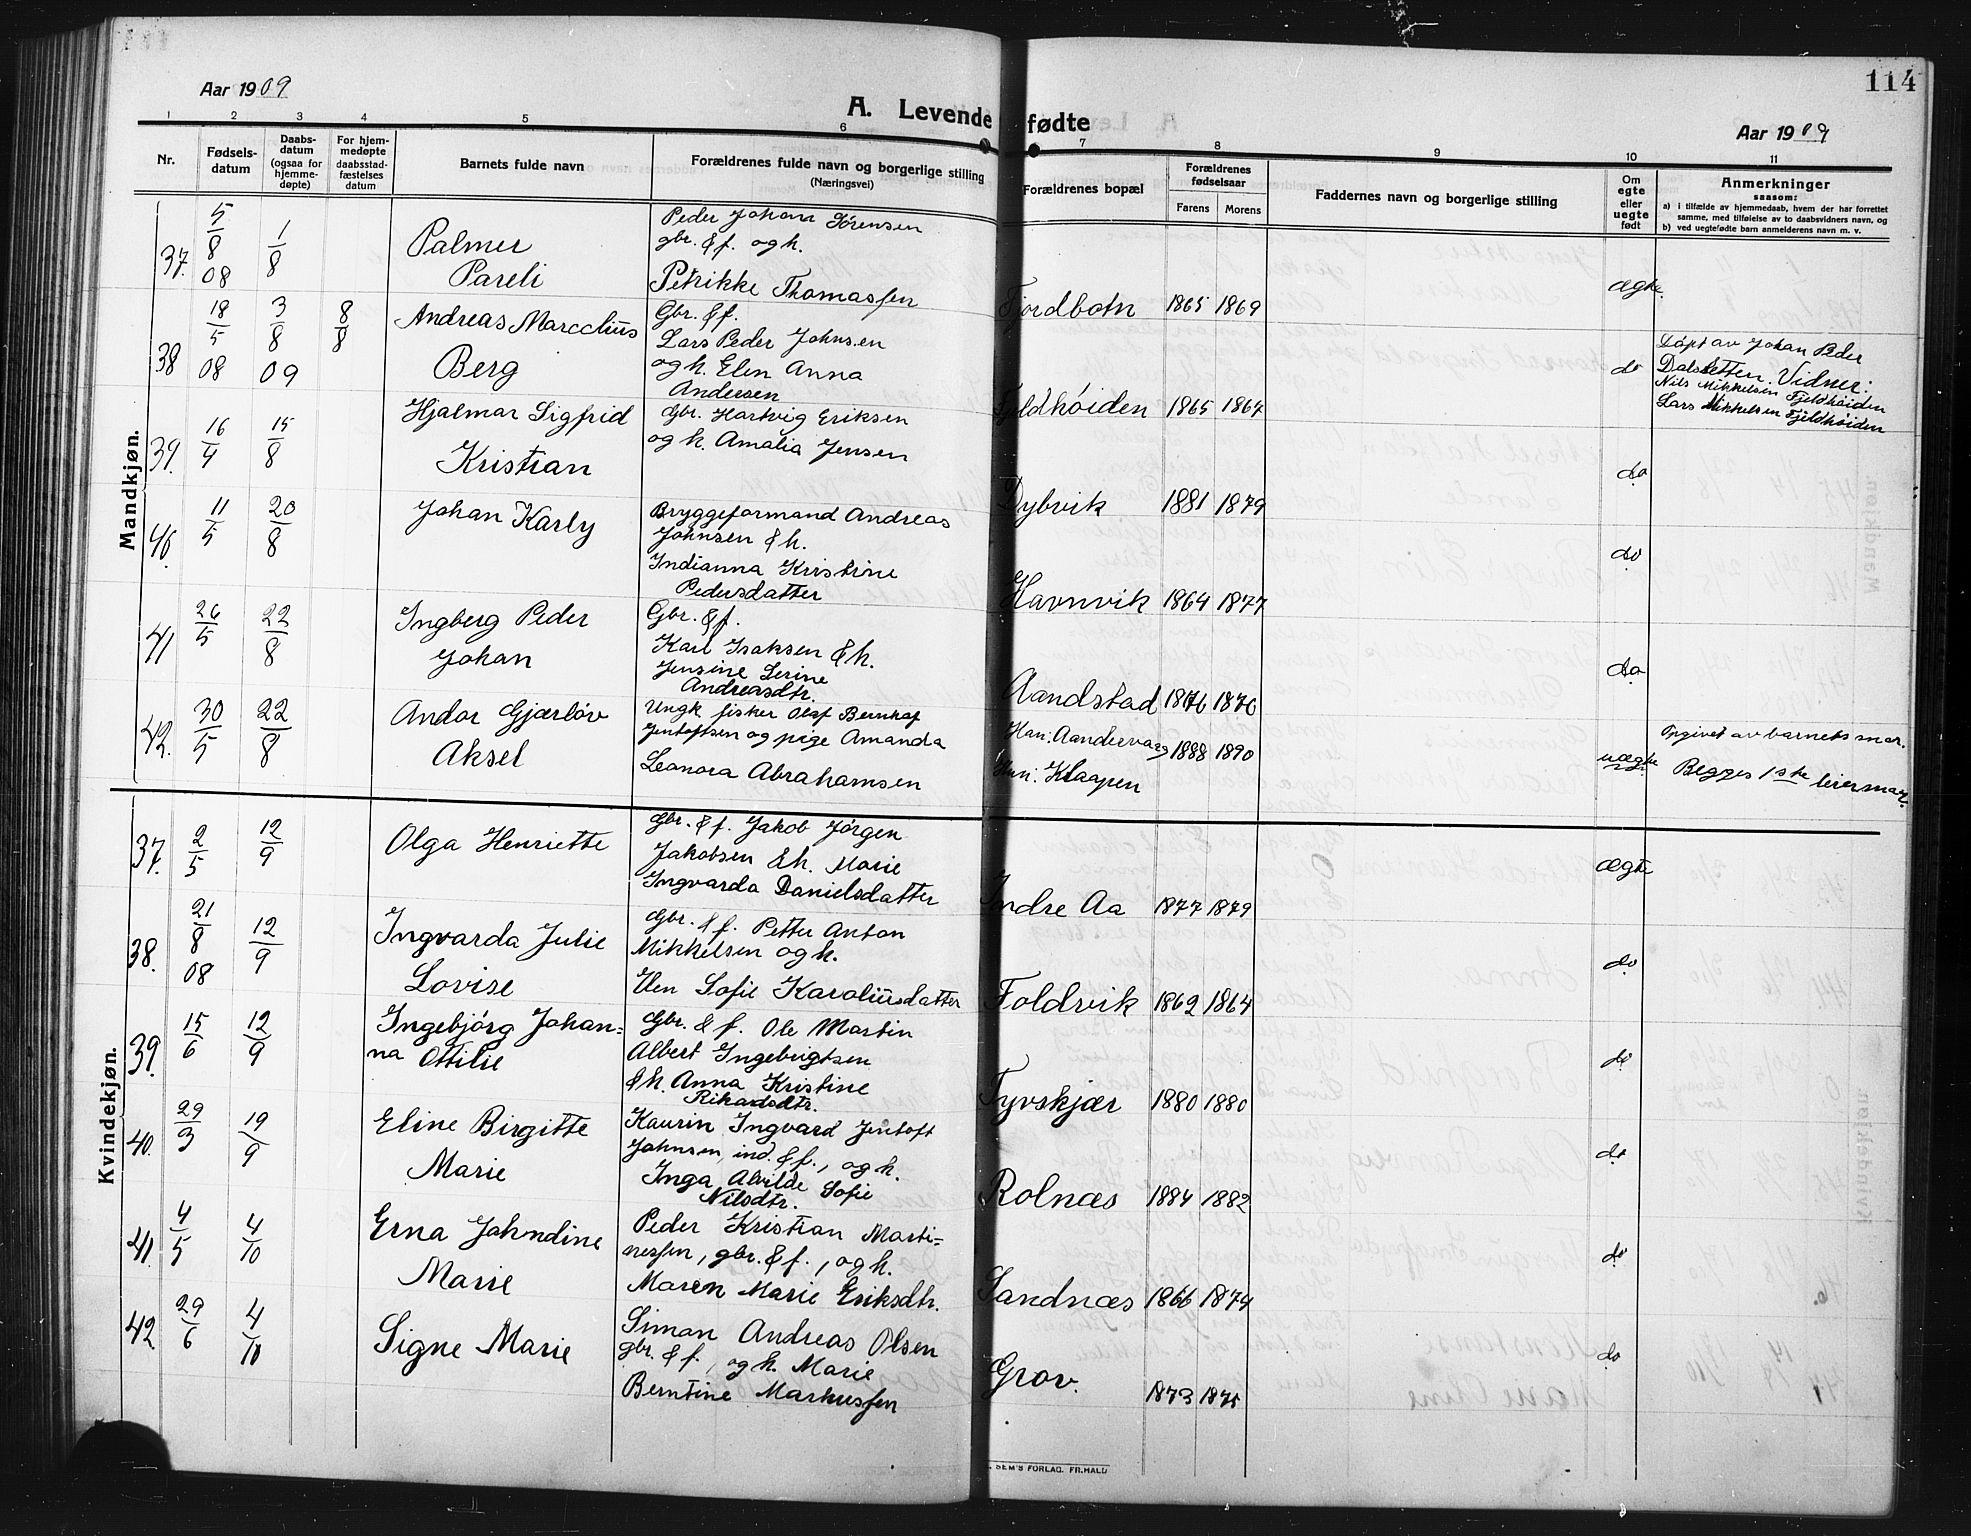 114
Aar 1909
A. Levende fødte
Aar 1909
1 2 3 4 5 6 7 8 9 10 11
Nr.
Fødselsdatum
Daabsdatum (ogsaa for hjemmedøpte)
For hjemmedøpte daabsstadfæstelses datum
Barnets fulde navn
Forældrenes fulde navn og borgerlige stilling
(Næringsvei)
Forældrenes bopæl
Forældrenes fødselsaar
Farens Morens
Faddernes navn og borgerlige stilling
Om egte eller uegte født
Anmerkninger
saasom:
a) i tilfælde av hjemmedaab, hvem der har forrettet
samme, med tilføielse av to daabsvidners navn, og
b) ved uegtefødte barn anmelderens navn m. v.
Mandkjøn.
37. 5/8 08 1/8
Palmer
Pareli
Peder Johan Sørensen
gbr. & f. og h.
Petrikke Thomassen
Fjordbotn 1865 1869 ægte
38 18/5 08 3/8 09 8/8
Andreas Marcelius
Berg
Gbr. & f.
Lars Peder Johnsen
og h. Elen Anna
Andersen
Fjeldhøiden 1865 1867 do
Døpt av Johan Peder
Dalsletten. Vidner:
Nils Mikkelsen Fjeldhøiden
Lars Mikkelsen Fjeldhøiden
39. 16/4 15/8
Hjalmar Sigfrid
Kristian
Gbr. Hartvig Eriksen
og h. Amalia Jensen
Dybvik 1881 1879 do
40. 11/5 20/8
Johan Karly
Bryggeformand Andreas
Johnsen & h.
Indianna Kristine
Pedersdatter
Havnvik 1864 1877 do
41 26/5 22/8
Ingberg Peder
Johan
Gbr. & f.
Karl Isaksen & h.
Jensine Serine
Andreasdtr.
Aandstad 1876 1876 do
42. 30/5 22/8
Andor Gjærløv
Aksel
Ungk. fisker Olaf Bernhof
Jentoftsen og pige Amanda
Leonora Abrahamsen
Han: Aandervaag 1888 1890
Hun: Klaapen
uægte
Opgivet av barnets mor.
Begges 1ste leiermaal.
Kvindekjøn.
37. 2/5 12/9
Olga Henriette
Gbr. & f. Jakob Jørgen
Jakobsen & h. Marie
Ingvarda Danielsdatter
Indre Aa 1877 1879 ægte
38. 21/8 08 12/9
Ingvarda Julie
Lovise
Gbr. & f. Petter Anton
Mikkelsen og h.
Elen Sofie Karoliusdatter
Foldvik 1862 1864 do
39. 15/6 12/9
Ingebjørg Johan=
na Ottilie
Gbr. & f. Ole Martin
Albert Ingebrigtsen
& h. Anna Kristine
Rikardsdtr.
Tyvskjær 1880 1880 do
40. 29/3 19/9
Eline Birgitte
Marie
Kaurin Ingvard Jentoft
Johnsen, ind. & f., og h.
Inga Alvilde Sofie
Nilsdtr.
Rolnæs 1884 1882 do
41. 4/5 4/10
Erna Jahndine
Marie
Peder Kristian Marti=
nessen, gbr. & f., og h.
Maren Marie Eriksdtr.
Sandnæs 1866 1874 do
42 29/6 4/10
Signe Marie
Simon Andreas Olsen
gbr. & f., og h. Marie
Berntine Markussen
Grov. 1873 1875 do
SEM'S FORLAG. FR.HALD